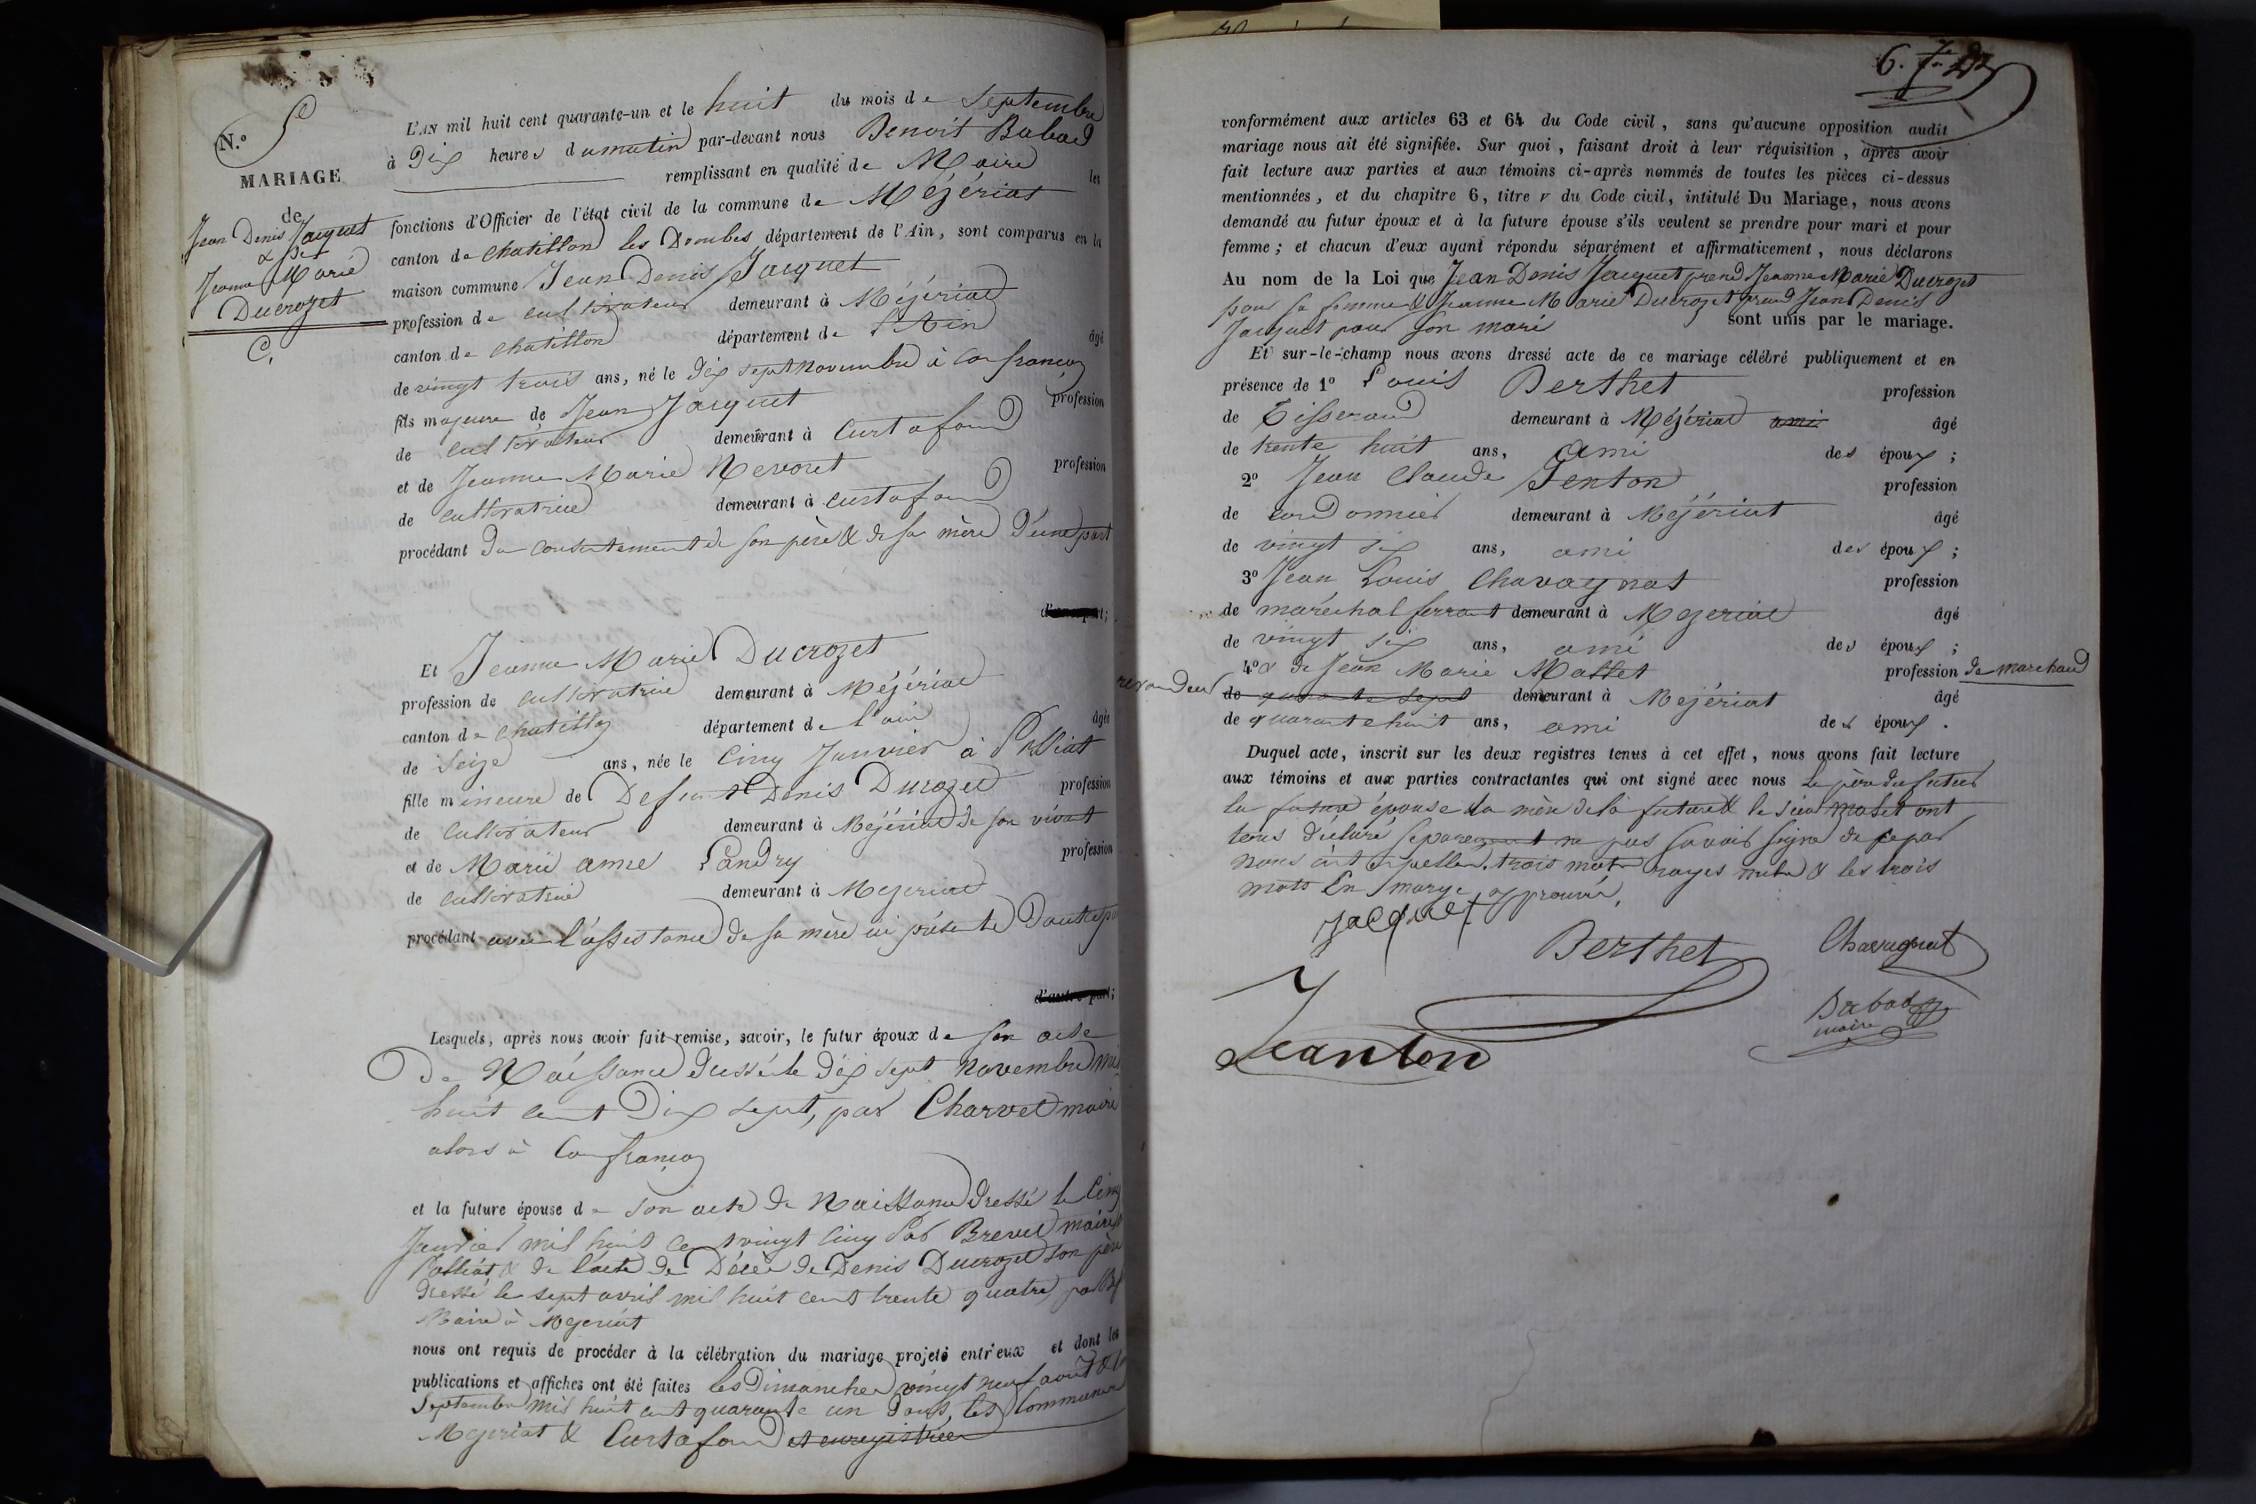 N.o 5e
MARIAGE
de
Jean Denis Jacquet
& de
Jeanne Marie
Ducrozet
C.
L'AN mil huit cent quarante-un et le huit du mois de Septembre
à Dix heures du matin par-devant nous Benoit Babad
remplissant en qualité de Maire les
fonctions d'Officier de l'état civil de la commune de Mézériat
canton de Chatillon les Dombes département de l'Ain, sont comparus en la
maison commune Jean Denis Jacquet
profession de cultivateur demeurant à Mézériat
canton de Chatillon département de l'Ain âgé
de vingt trois ans, né le dix sept novembre à Confrançon
fils majeure de Jean Jacquet profession
de cultivateur demeurant à Curtafond
et de Jeanne Marie Nevoret profession
de cultivatrice demeurant à Curtafond
procédant du consentement de son père & de sa mère d'une part
d'une part;
Et Jeanne Marie Ducrozet
profession de cultivatrice demeurant à Méjériat
canton de Chatillon département de l'ain âgée
de Seize ans, née le Cinq Janvier à Polliat
fille mineure de Defunt Denis Ducrozet profession
de Cultivateur demeurant à Mejériat de son vivant
et de Marie anne Landry profession
de cultivatrice demeurant à Mejeriat
procédant avec l'assistance de sa mère ici présente D'autre part
d'autre part;
Lesquels, après nous avoir fait remise, savoir, le futur époux de son acte
De Naissance dressé le dix sept novembre mil
huit cent Dix sept, par Charvet maire
alors à Confrançon
et la future épouse de son acte de Naissance dressé le Cinq
Janvier mil huit cent vingt cinq Par Brevet maire
Polliat & de l'acte de Décès de Denis Ducrozet son père
dressé le sept avril mil huit cent trente quatre par
Maire à Mejeriat
nous ont requis de procéder à la célébration du mariage projeté entr'eux et dont les
publications et affiches ont été faites les Dimanches vingt neuf août &
Septembre mil huit cent quarante un dans les Communes
Mejeriat & Curtafond et enregistrées
6.
conformément aux articles 63 et 64 du Code civil, sans qu'aucune opposition audit
mariage nous ait été signifiée. Sur quoi, faisant droit à leur réquisition, après avoir
fait lecture aux parties et aux témoins ci-après nommés de toutes les pièces ci-dessus
mentionnées, et du chapitre 6, titre v du Code civil, intitulé Du Mariage, nous avons
demandé au futur époux et à la future épouse s'ils veulent se prendre pour mari et pour
femme; et chacun d'eux ayant répondu séparément et affirmativement, nous déclarons
Au nom de la Loi que Jean Denis Jacquet prend Jeanne Marie Ducrozet
pour sa femme & Jeanne Marie Ducrozet prend Jean Denis
Jacquet pour son mari sont unis par le mariage.
Et sur-le-champ nous avons dressé acte de ce mariage célébré publiquement et en
présence de 1o Louis Berthet profession
de Tisserand demeurant à Méjériat ami âgé
de trente huit ans, ami des époux;
2o Jean Claude Jenton profession
de cordonnier demeurant à Mejériat âgé
de vingt six ans, ami des époux;
3o Jean Louis Chavagnat profession
de maréchal ferrant demeurant à Mejeriat âgé
de vingt six ans, ami des époux;
4o & de Jean Marie Mallet profession de marchand
revendeur de quarante sept demeurant à Mejériat âgé
de quarante huit ans, ami des époux.
Duquel acte, inscrit sur les deux registres tenus à cet effet, nous avons fait lecture
aux témoins et aux parties contractantes qui ont signé avec nous Le père du futur
la future épouse la mère de la future & le sieur Malet ont
tous déclaré separement ne pas savoir signé de ce par
nous interpellés. trois mots rayés nuls & les trois
mots En marge approuvé.
Jacquet
Berthet
Chavagnat
Jeanton
Babad
maire